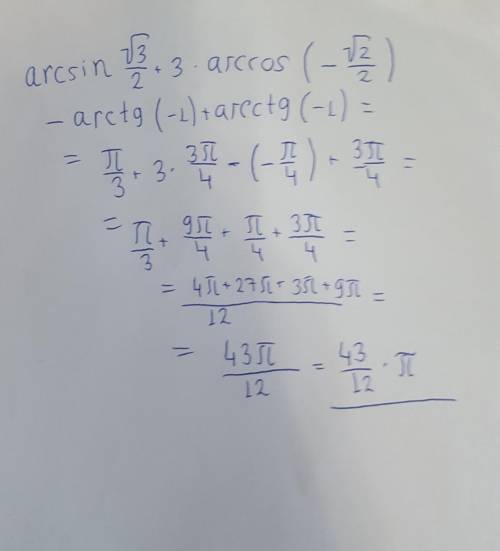 arcsin √3/2 + 3 · arccos (-√2/2)
- arctg (-1) + arcctg (-1) =
= π/3 + 3 · 3π/4 - (-π/4) + 3π/4 =
= π/3 + 9π/4 + π/4 + 3π/4 =
= 4π + 27π + 3π + 9π/12 =
= 43π/12 = 43/12 · π